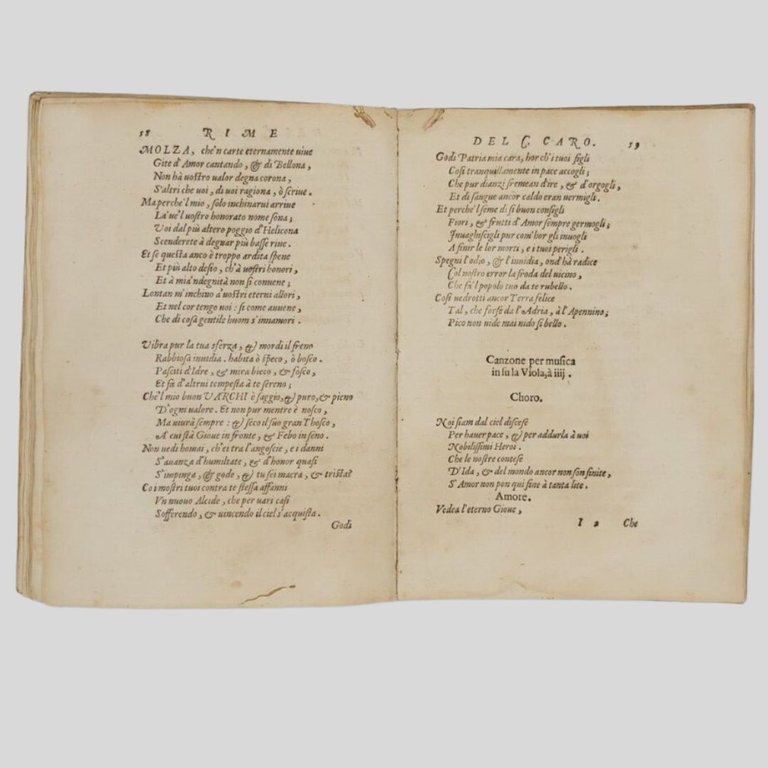 18 RIME
MOLZA, che'n carte eternamente viue
Gite d'Amor cantando, & di Bellona,
Non hà vostro valor degna corona,
S'altri che voi, di voi ragiona, ò scriue.
Ma perche'l mio, solo inchinarui arriue
La've'l vostro honorato nome sona;
Voi dal più altero poggio d'Helicona
Scenderete à degnar più basse riue.
Et se questa anco è troppo ardita spene
Et più alto desio, ch'à vostri honori,
Et à mia'ndegnità non si conuene;
Lontan m'inchino à vostri eterni allori,
Et nel cor tengo voi: si come auuene,
Che di cosà gentile huom s'innamori.
Vibra pur la tua sferza, & mordi il freno
Rabbiosa inuidia. habita ò speco, ò bosco.
Pasciti d'Idre, & mira bieco, & fosco,
Et fà d'altrui tempesta à te sereno;
Che'l mio buon VARCHI è saggio, & puro, & pieno
D'ogni valore. Et non pur mentre è nosco,
Ma viurà sempre: & seco il suo gran Thosco,
A cui stà Gioue in fronte, & Febo in seno.
Non vedi homai, ch'ei tra l'angoscie, e i danni
S'auanza d'humiltate, & d'honor quasi
S'impinga, & gode, & tu sei macra, & trista?
Co i mostri tuoi contra te stessa affanni
Vn nuouo Alcide, che per vari casi
Sofferendo, & vincendo il ciel s'acquista.
Godi
DEL C. CARO. 19
Godi Patria mia cara, hor ch'i tuoi figli
Cosi tranquillamente in pace accogli;
Che pur dianzi fremean d'ire, & d'orgogli,
Et di sangue ancor caldo eran vermigli.
Et perche'l seme di si buon consigli
Fiori, & frutti d'Amor sempre germogli;
Inuaghiscigli pur com'hor gli inuogli
A finir le lor morti, e i tuoi perigli.
Spegni l'odio, & l'inuidia, ond'hà radice
Col nostro error la froda del vicino,
Che fà'l popolo tuo da te rubello.
Così vedrotti ancor Terra felice
Tal, che forse da l'Adria, à l'Apennino;
Pico non vide mai nido sì bello.
Canzone per musica
in su la Viola, à iiij.
Choro.
Noi siam dal ciel discese
Per hauer pace, & per addurla à voi
Nobilissimi Heroi.
Che le nostre contese
D'Ida, & del mondo ancor non son finite,
S'Amor non pon qui fine à tanta lite.
Amore.
Vedea l'eterno Gioue,
I 2 Che